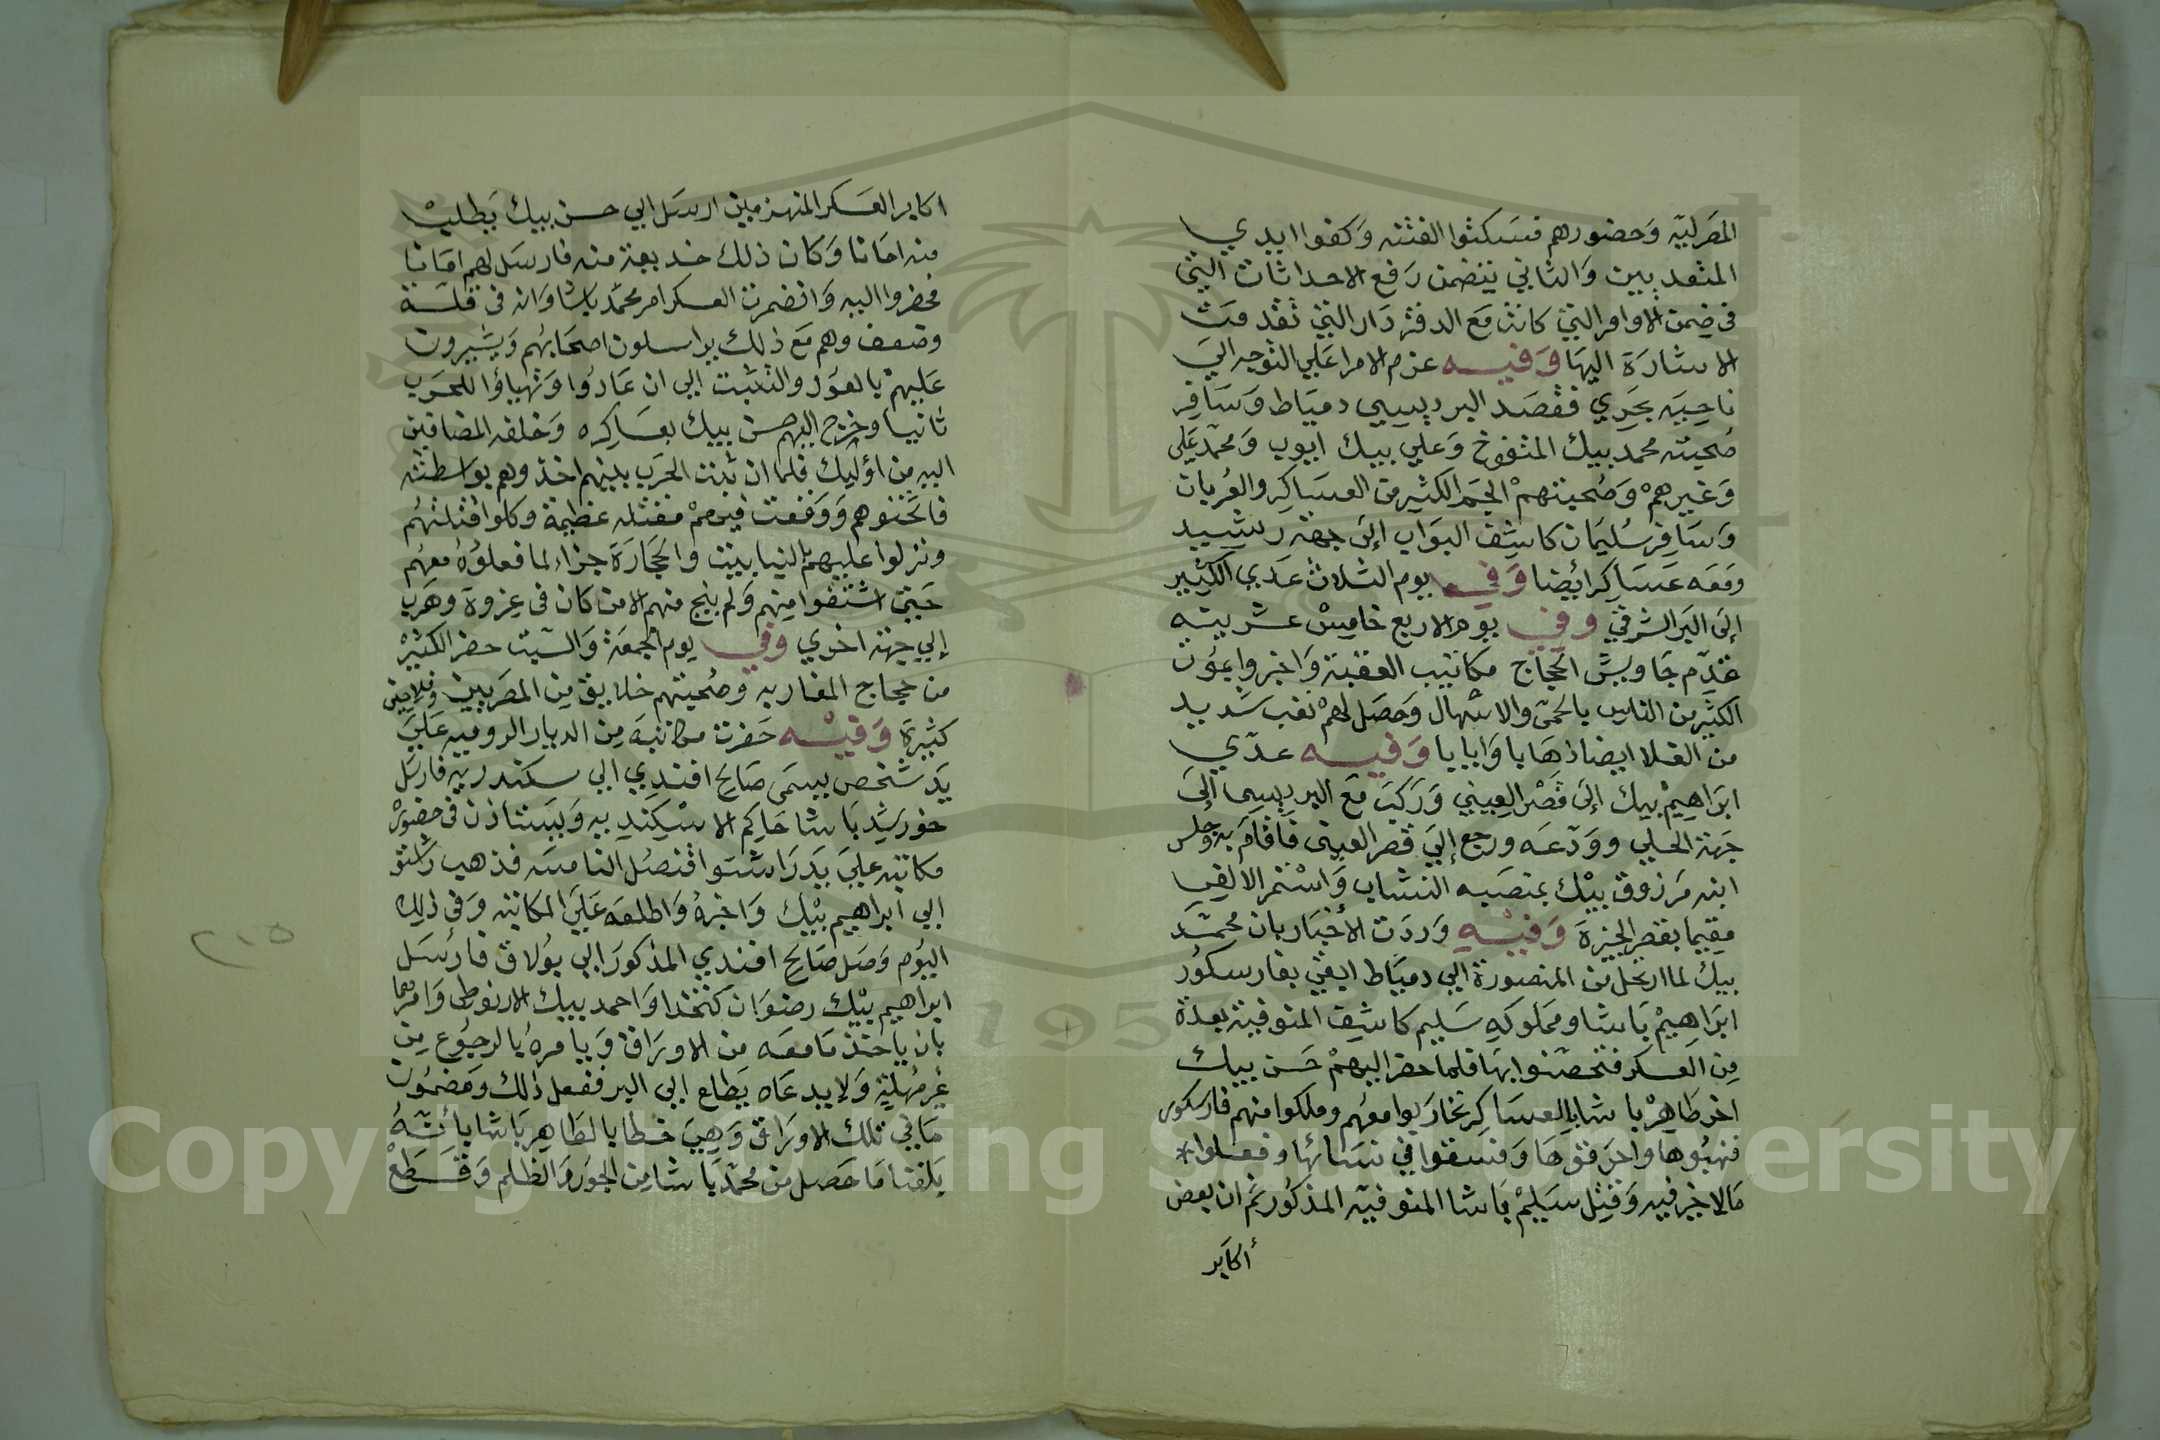 المصرلية وحضورهم فسكنوا الفتنة وكفوا ايدي
المتعديين والثاني يتضمن رفع الاحداثات التي
في ضمن الاوامر التي كانت مع الدفتردار التي تقدمت
الاشارة اليها وفيه عزم الامرا علي التوجه الي
ناحية بحري فقصد البرديسي دمياط وسافر
صحبته محمد بيك المنفوخ وعلي بيك ايوب ومحمد علي
وغيرهم وصحبتهم الجم الكثير من العساكر والعربان
وسافر سليمان كاشف البواب إلى جهة رشيد
ومعه عساكر ايضا وفي يوم الثلاث عدي الكثير
إلى البر الشرقي وفي يوم الاربع خامس عشريته
قدم جاويش الحجاج بمكاتيب العقبة واخبروا بموت
الكثير من الناس بالحمى والاسهال وحصل لهم تعب شديد
من الغلا ايضا ذهابا وايابا وفيه عدّي
ابراهيم بيك إلى قصر العيني وركب مع البرديسي إلى
جهة الحلي وودعه ورجع إلي قصر العيني فاقام به وجلس
ابنه مرزوق بيك بمنصبه النشاب واستمر الالفي
مقيما بقصر الجيزة وفيه وردت الأخبار بان محمد
بيك لما ارتحل من المنصورة الي دمياط ابقي بفارسكور
ابراهيم باشا ومملوكه سليم كاشف المنوفية بعدة
من العسكر فتحصنوا بها فلما حضر اليهم حسن بيك
اخو طاهر باشا بالعساكر تحاربوا معهم وملكوا منهم فارسكور
فنهبوها واحرقوها وفسقوا في نسائها وفعلوا *
مالا خير فيه وقتل سليم باشا المنوفية المذكور ثم ان بعض
أكابر
اكابر العسكر المنهزمين ارسل الي حسن بيك يطلب
منه امانا وكان ذلك خديعة منه فارسل لهم امانا
فحضروا اليه وانضمرت العسكر امر محمد باشا وانه في قلة
وضعف وهم مع ذلك يراسلون اصحابهم ويشيرون
عليهم بالعود والتثبت الي ان عادوا وتهياؤا للحرب
ثانيا وخرج اليهم حسن بيك بعساكره وخلفه المضافين
اليه من اولئك فلما ان ثبت الحرب بينهم اخذوهم بواسطته
فاثخنوهم ووقعت فيهم مقتله عظيمة وكلوا قتلتهم
ونزلوا عليهم بالنبابيت والحجارة جزاء لما فعلوه معهم
حتي اشتفوا منهم ولم ينج منهم الا من كان في عزوة وهرب
إلي جهة اخري وفي يوم الجمعة والسبت حضر الكثير
من حجاج المغاربه وصحبتهم خلايق من المصريين وفلاحين
كثيرة وفيه حضرت مكاتبة من الديار الروميه علي
يد شخص يسمى صالح افندي الي سكندريه فارسل
خورشيد باشا حاكم الاسكنديه ويستاذن في حضوره
مكاتبه علي يد راشتوا قنصل النامسه فذهب راشتوا
الي ابراهيم بيك واخبره واطلعه على المكاتبة وفي ذلك
اليوم وصل صالح افندي المذكور الي بولاق فارسل
ابراهيم بيك رضوان كتخدا واحمد بيك الارنوطي وامرهما
بان ياخذ ما معه من الاوراق ويامره بالرجوع من
غير مهلة ولا يدعاه يطلع الي البر ففعل ذلك ومضمون
ما في تلك الاوراق وهي خطابا لطاهر باشا بانه
بلغنا ما حصل من محمد باشا من الجور والظلم وقطع
٢١٥
Copyright © King Saud University
1957